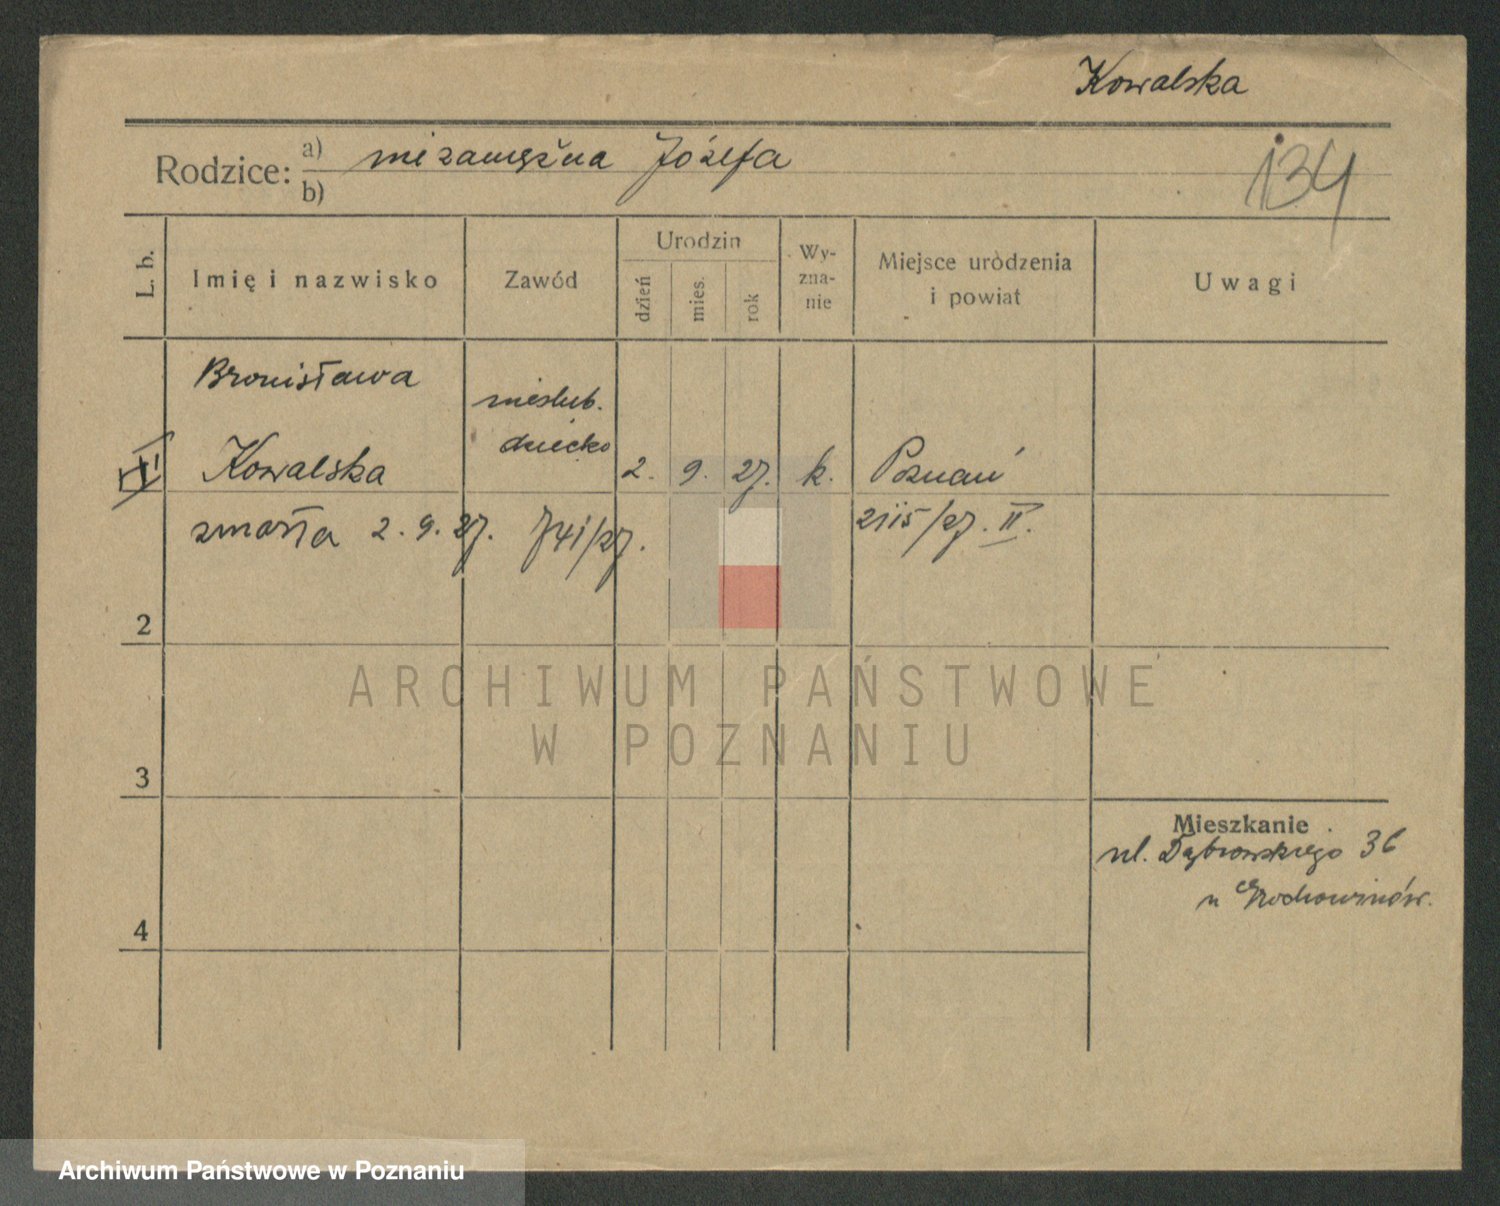 Kowalska
134
Rodzice: a) niezamężna Józefa
b)
L. b.
Imię i nazwisko
Zawód
Urodzin
dzień
mies.
rok
Wy-
zna-
nie
Miejsce urodzenia
i powiat
Uwagi
Bronisława
nieślub.
dziecko
Kowalska
2. 9. 27. k. Poznań
zmarła 2. 9. 27. 741/27.
2115/27. II.
2
ARCHIWUM PAŃSTWOWE
W POZNANIU
3
Mieszkanie
ul. Dąbrowskiego 36
u
4
Archiwum Państwowe w Poznaniu